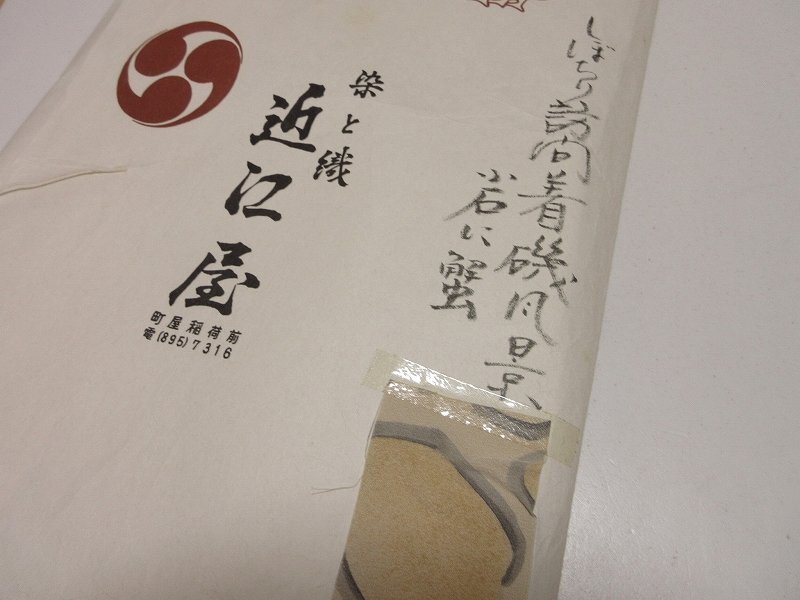 しぼり訪問着磯風景
岩に蟹
染と織
近江屋
町屋稲荷前
電(895)7316